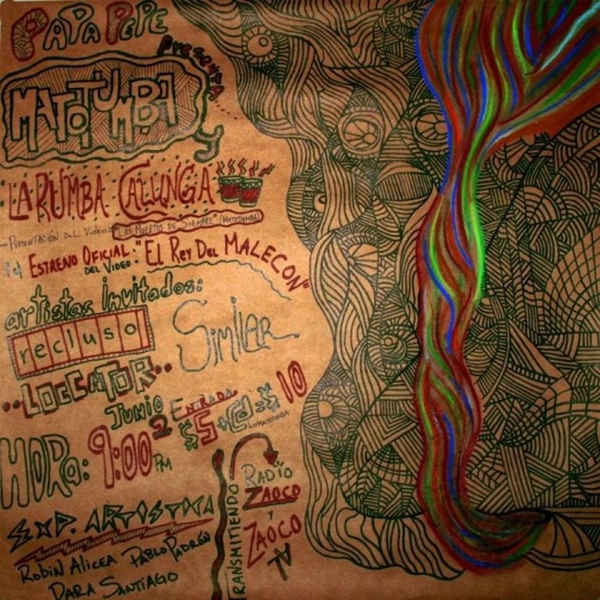 PAPA PEPE
PRESENTA...
MATOTUMBA
y
LA RUMBA: CALUNGA
PRESENTACIÓN DEL VIDEO:
Y ESTRENO OFICIAL: "EL REY DEL MALECON"
DEL VIDEO
artistas invitados:
recluso
SIMILER
..LOCCATOR..
JUNIO 2
ENTRADA
$5 + CD = $10
HORA: 9:00 PM
EXP. ARTISTICA
ROBIN ALICEA PABLO PADRÓN
DARA SANTIAGO
TRANSMITIENDO
RADIO
ZAOCO
Y
ZAOCO
TV